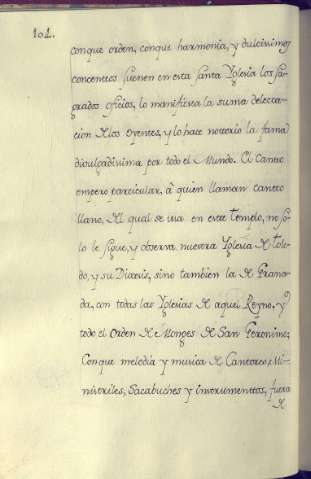 101.
conque orden, conque harmonia, y dulcissimos
concentos suenen en esta santa Yglesia los sa-
grados oficios, lo manifiesta la suma delecta-
cion de los oyentes, y lo hace notorio la fama
divulgadissima por todo el Mundo. El Canto
empero particular, à quien llaman canto
llano, del qual se usa en este templo, no so-
lo le sigue, y observa nuestra Yglesia de tole-
do, y su Diocesis, sino tambien la de Grana-
da, con todas las Yglesias de aquel Reyno, y
todo el Orden de Monges de San Geronimo;
Conque melodia y musica de Cantores, Mi-
nistriles, Sacabuches y instrumentos, fuera
de